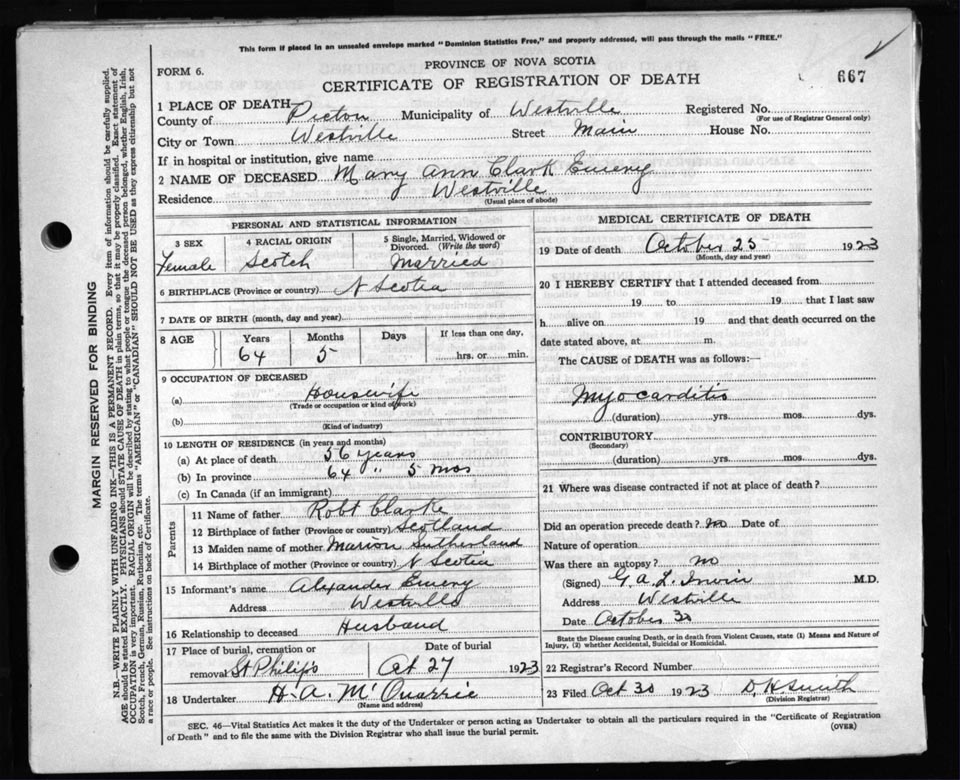 This form if placed in an unsealed envelope marked "Dominion Statistics Free," and properly addressed, will pass through the mails "FREE."
PROVINCE OF NOVA SCOTIA
FORM 6.
CERTIFICATE OF REGISTRATION OF DEATH
667
1 PLACE OF DEATH
County of Pictou Municipality of Westville Registered No.
(For use of Registrar General only)
City or Town Westville Street Main House No.
If in hospital or institution, give name
2 NAME OF DECEASED Mary Ann Clark Emery
Residence Westville
(Usual place of abode)
PERSONAL AND STATISTICAL INFORMATION
3 SEX 4 RACIAL ORIGIN 5 Single, Married, Widowed or Divorced. (Write the word)
Female Scotch Married
6 BIRTHPLACE (Province or country) N Scotia
7 DATE OF BIRTH (month, day and year)
8 AGE Years Months Days If less than one day,
64 5 hrs. or min.
9 OCCUPATION OF DECEASED
(a) Housewife
(Trade or occupation or kind of work)
(b)
(Kind of industry)
10 LENGTH OF RESIDENCE (in years and months)
(a) At place of death 56 years
(b) In province 64 " 5 mos
(c) In Canada (if an immigrant)
Parents
11 Name of father Robt Clarke
12 Birthplace of father (Province or country) Scotland
13 Maiden name of mother Marion Sutherland
14 Birthplace of mother (Province or country) N Scotia
15 Informant's name Alexander Emery
Address Westville
16 Relationship to deceased Husband
17 Place of burial, cremation or removal Date of burial
St Philips Oct 27 1923
18 Undertaker H. A. McQuarrie
(Name and address)
MEDICAL CERTIFICATE OF DEATH
19 Date of death October 25 1923
(Month, day and year)
20 I HEREBY CERTIFY that I attended deceased from
19 to 19 that I last saw
h alive on 19 and that death occurred on the
date stated above, at m.
The CAUSE of DEATH was as follows:—
Myocarditis
(duration) yrs. mos. dys.
CONTRIBUTORY
(Secondary)
(duration) yrs. mos. dys.
21 Where was disease contracted if not at place of death?
Did an operation precede death? no Date of
Nature of operation
Was there an autopsy? no
(Signed) G. A. L. Irwin M.D.
Address Westville
Date October 30
State the Disease causing Death, or in death from Violent Causes, state (1) Means and Nature of
Injury, (2) whether Accidental, Suicidal or Homicidal.
22 Registrar's Record Number
23 Filed Oct 30 1923 D. H. Smith
(Division Registrar)
SEC. 46—Vital Statistics Act makes it the duty of the Undertaker or person acting as Undertaker to obtain all the particulars required in the "Certificate of Registration
of Death" and to file the same with the Division Registrar who shall issue the burial permit.
(OVER)
MARGIN RESERVED FOR BINDING
N.B.—WRITE PLAINLY WITH UNFADING INK—THIS IS A PERMANENT RECORD. Every item of information should be carefully supplied.
AGE should be stated EXACTLY. PHYSICIANS should STATE CAUSE OF DEATH in plain terms, so that it may be properly classified. Exact statement of
OCCUPATION is very important. RACIAL ORIGIN will be described by stating to what people or tongue the deceased person belonged, whether English, Irish,
Scotch, French, German, Russian, Ruthenian, etc. The terms "AMERICAN" or "CANADIAN" SHOULD NOT BE USED as they express citizenship but not
a race or people. See instructions on back of Certificate.